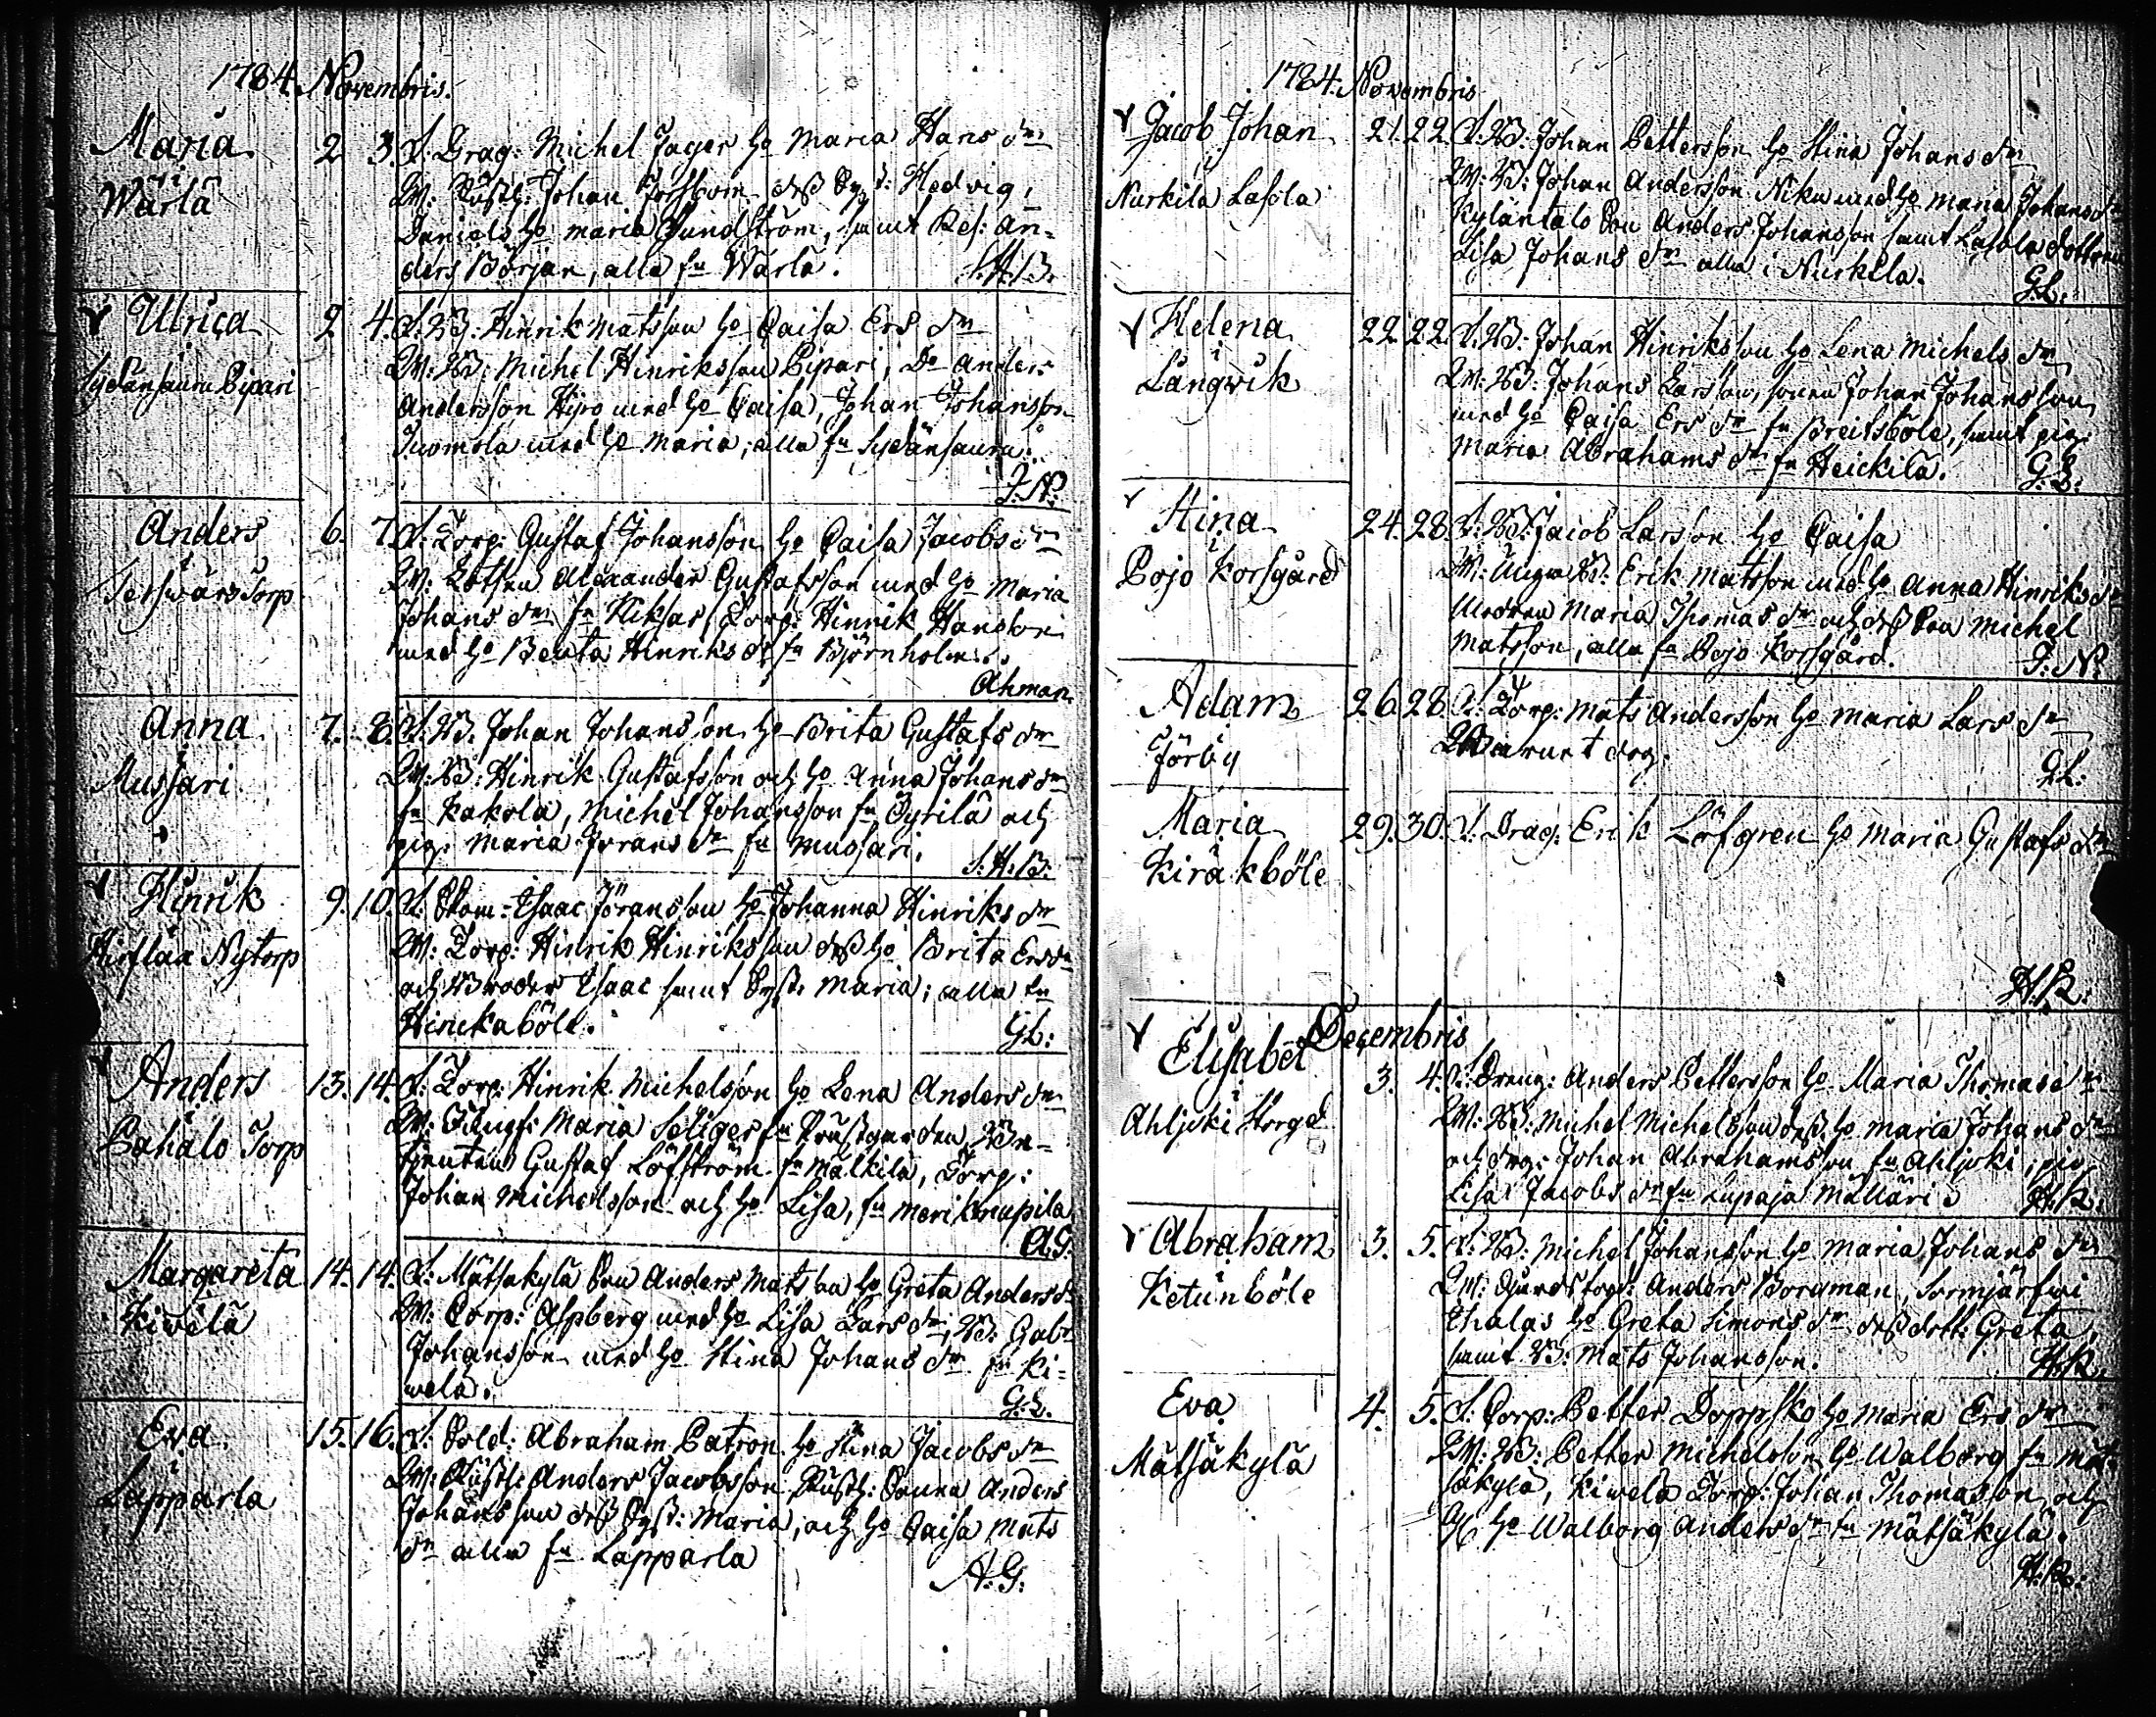 1784. Novembris.
Maria
i
Wärlä
2 3. F. Drag: Michel Jager Ho Maria Hans dr
W: Rusth: Johan Forsbom dess Syst: Hedvig,
Daniels Ho Maria Sundström, samt Ref: An-
ders Början, alla fn Wärlä. S.H.B.
Ulrica
i
Sydänsaura Pipari
2 4. F. B: Hinrik Matsson Ho Caisa Ers dr
W: B: Michel Hinriksson Pipari, Do Anders
Andersson Hijro med Ho Caisa, Johan Johansson
Tuomola med Ho Maria, alla fn Sydänsaura.
J.N.
Anders
i
Torp
6. 7. F: Torp: Gustaf Johansson Ho Caisa Jacobs dr
W: Lotsen Alexander Gustafsson med Ho Maria
Johans dr fn Niksar, Torp: Hinrik Hansson
med Ho Beata Hinriks dr fn Björnholm.
Ahman
Anna
i
Mussari
7. 8. F. B. Johan Johansson Ho Brita Gustafs dr
W: B: Hinrik Gustafsson och Ho Anna Johans dr
fn Kakola, Michel Johansson fn Pyrilä och
pig. Maria Jorans dr fn Mussari. S.H.B.
Hinrik
i
Nytorp
9. 10. F. Skom: Isaac Jöransson Ho Johanna Hinriks dr
W: Torp: Hinrik Hinriksson dess Ho Brita Ers dr
och Broder Isaac samt Syst. Maria; alla fn
Hinckaböle. GL:
Anders
i
Pahalo Torp
13. 14. F: Torp: Hinrik Michelsson Ho Lena Anders dr
W: Maria Seliger fn Be-
tjenten Gustaf Löfström fn Mälkilä, Torp:
Johan Michelsson och Ho Lisa, fn Meriknupila
A.G.
Margareta
i
Kiwelä
14. 14. F: Mätsäkylä Son Anders Matsson Ho Greta Anders dr
W: Corp: Alpberg med Ho Lisa Lars dr, B: Gabr
Johansson med Ho Stina Johans dr fn Ki-
welä. G.L.
Eva
i
Lapparla
15. 16. F: Sold: Abraham Patron Ho Stina Jacobs dr
W: Rusth: Anders Jacobsson Rusth: Sonen Anders
Johansson dess Syst: Maria, och Ho Caisa Mats
dr alla fn Lapparla
A.G.
1784. Novembris
Jacob Johan
i
Nurkila Lasola
21. 22. F. B: Johan Pettersson Ho Stina Johans dr
W: B: Johan Andersson Niku med Ho Maria Johans dr
Kyläntalo Son Anders Johansson samt Lasola dottren
Lisa Johans dr alla i Nurkila. G.L:
Helena
i
Långwik
22. 22. F. B: Johan Hinriksson Ho Lena Michels dr
W: B: Johans Larsson, sonen Johan Johansson
med Ho Caisa Ers dr fn Breitsböle, samt pig:
Maria Abrahams dr fn Heickilä. G.L:
Stina
i
Pojo Korsgård
24. 28. F: B: Jacob Larsson Ho Caisa
W: Unga B: Erik Matsson med Ho Anna Hinriks dr
Modren Maria Thomas dr och dess Son Michel
Matsson, alla fn Pojo Korsgård. J.N.
Adam
i
Förby
26. 28. F. Torp: Mats Andersson Ho Maria Lars dr
GL:
Maria
i
Kiräkböle
29. 30. F. Drag: Erik Löfgren Ho Maria Gustafs dr
H.R:
Decembris
Elisabet
i
Ahljoki Storgd
3. 4. F. Dreng: Anders Pettersson Ho Maria Thomas dr
W: B: Michel Michelsson dess Ho Maria Johans dr
och drg: Johan Abrahamsson fn Ahljoki, pig.
Lisa Jacobs dr fn Lupaja Mälläri. H.R.
Abraham
i
Ketunböle
3. 5. F: B: Michel Johansson Ho Maria Johans dr
W: Gårdsfogd: Anders Borgman, Sormjärfwi
Thalas Ho Greta Simons dr dess dott: Greta,
samt B: Mats Johansson. H.R.
Eva
i
Mätsäkylä
4. 5. F. Corp: Petter Doppsko Ho Maria Ers dr
W: B: Petter Michelsson Ho Walborg fn Mät-
säkylä, Kiwelä Torp: Johan Thomasson och
Ho Walborg Anders dr fn Mätsäkylä.
H.R.